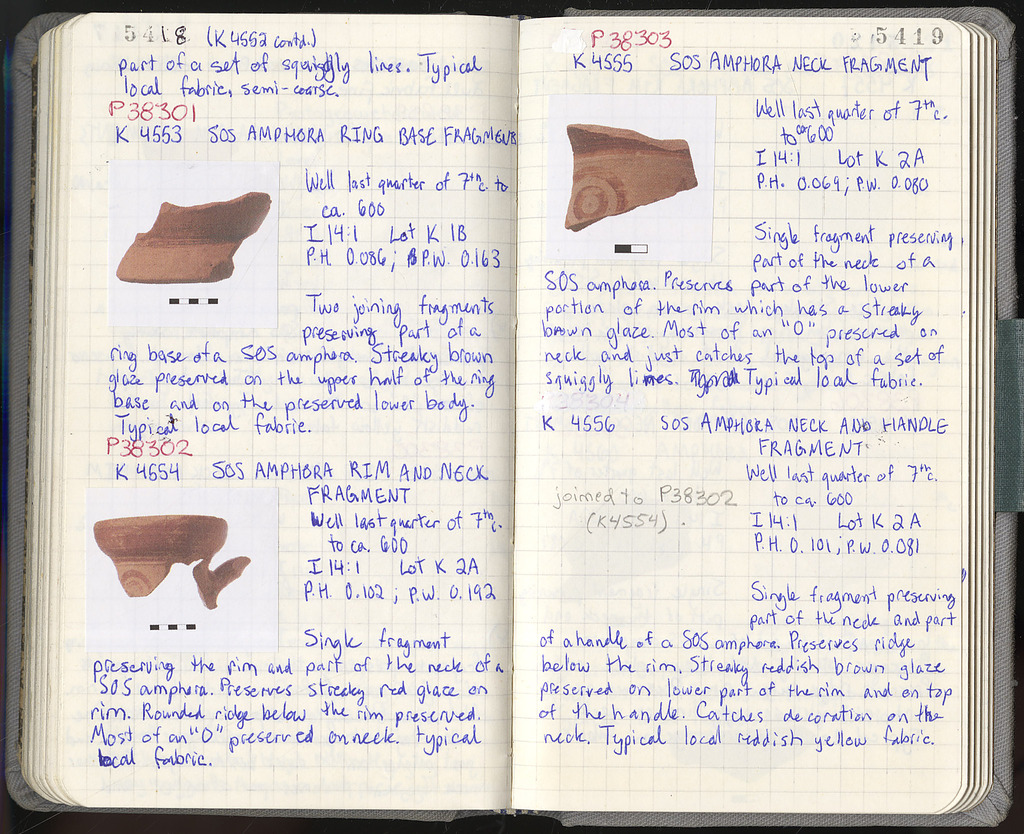 5418 (K 4552 contd.)
part of a set of squiggly lines. Typical
local fabric, semi-coarse.
P38301
K 4553 SOS AMPHORA RING BASE FRAGMENTS
Well last quarter of 7th c. to
ca. 600
I 14:1 Lot K 1B
P.H. 0.086; P.W. 0.163
Two joining fragments
preserving part of a
ring base of a SOS amphora. Streaky brown
glaze preserved on the upper half of the ring
base and on the preserved lower body.
Typical local fabric.
P38302
K 4554 SOS AMPHORA RIM AND NECK
FRAGMENT
Well last quarter of 7th c.
to ca. 600
I 14:1 Lot K 2A
P.H. 0.102; P.W. 0.192
Single fragment
preserving the rim and part of the neck of a
SOS amphora. Preserves streaky red glaze on
rim. Rounded ridge below the rim preserved.
Most of an "O" preserved on neck. Typical
local fabric.
5419
P 38303
K 4555 SOS AMPHORA NECK FRAGMENT
Well last quarter of 7th c.
to ca 600
I 14:1 Lot K 2A
P.H. 0.069; P.W. 0.080
Single fragment preserving
part of the neck of a
SOS amphora. Preserves part of the lower
portion of the rim which has a streaky
brown glaze. Most of an "O" preserved on
neck and just catches the top of a set of
squiggly lines. Typical local fabric.
K 4556 SOS AMPHORA NECK AND HANDLE
FRAGMENT
Well last quarter of 7th c.
to ca. 600
joined to P38302
(K4554).
I 14:1 Lot K 2A
P.H. 0.101; P.W. 0.081
Single fragment preserving
part of the neck and part
of a handle of a SOS amphora. Preserves ridge
below the rim. Streaky reddish brown glaze
preserved on lower part of the rim and on top
of the handle. Catches decoration on the
neck. Typical local reddish yellow fabric.